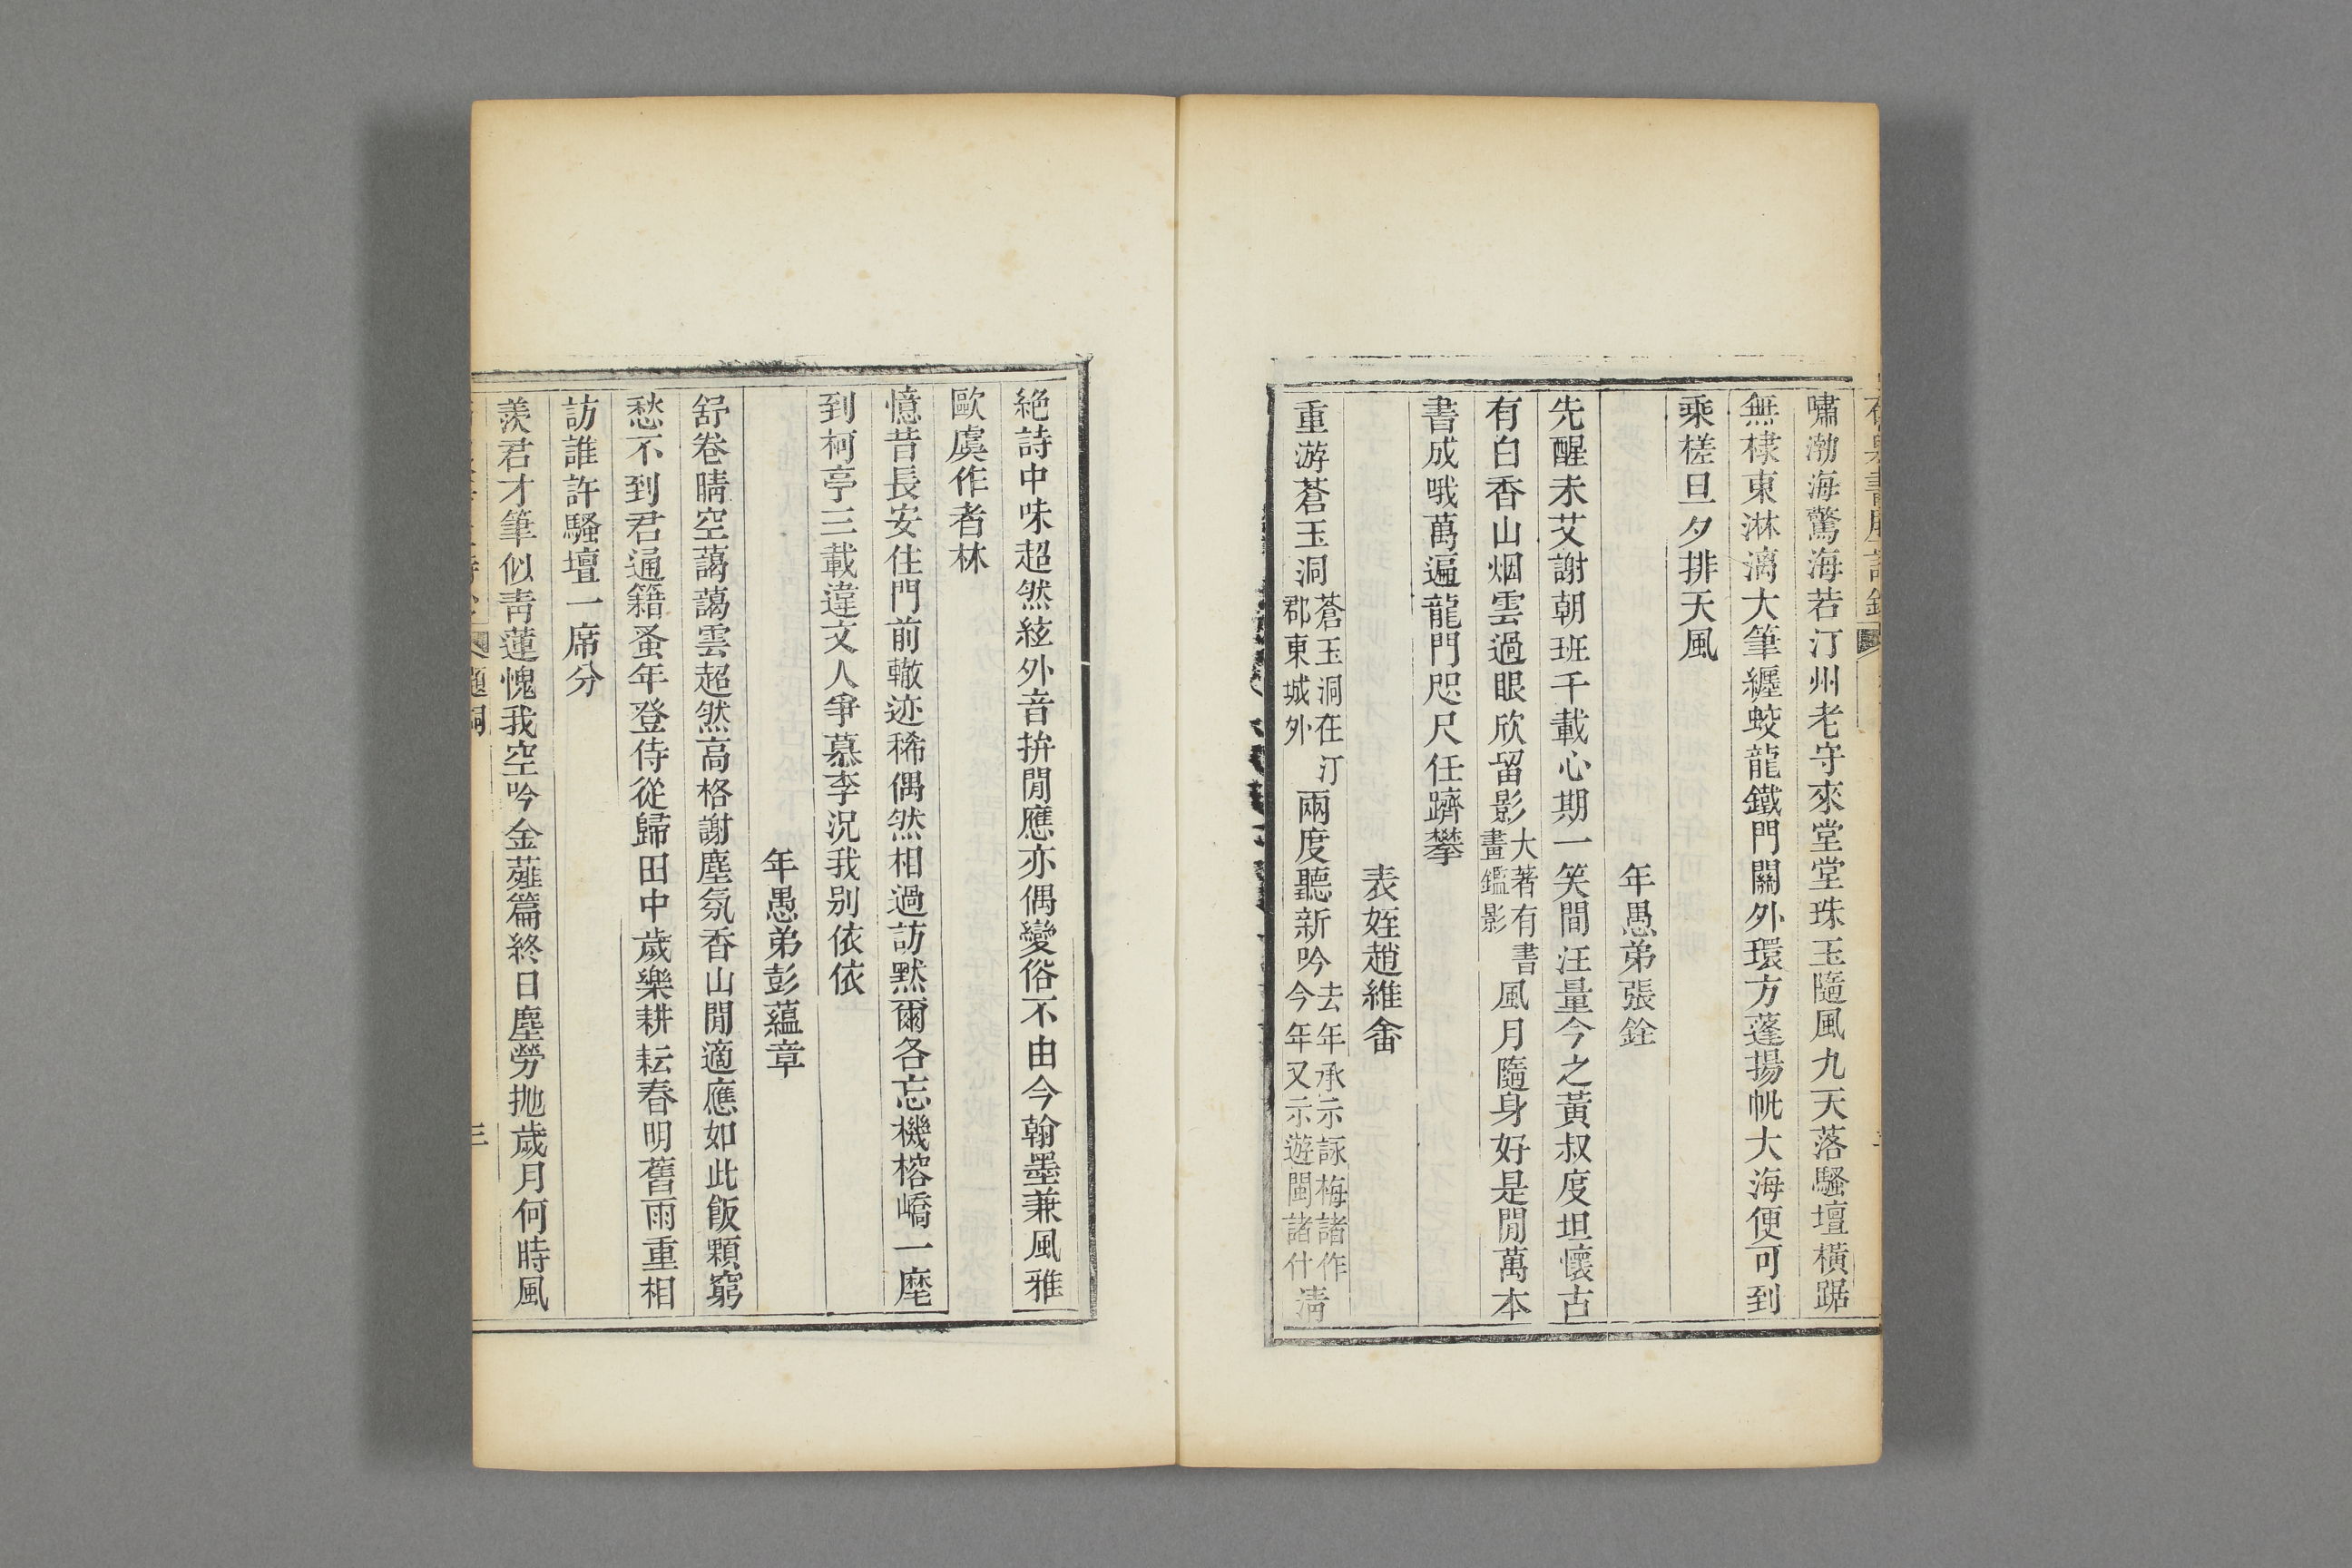 嘯渤海驚海若汀州老守來堂堂珠玉隨風九天落騷壇橫踞
無棣東淋漓大筆纒蛟龍鐵門關外環方蓬揚帆大海便可到
乘槎旦夕排天風
年愚弟張銓
先醒未艾謝朝班千載心期一笑間汪量今之黃叔度坦懷古
有白香山烟雲過眼欣留影大著有書畫鑑影風月隨身好是閒萬本
書成哦萬遍龍門咫尺任躋攀
表姪趙維畬
重游蒼玉洞蒼玉洞在汀郡東城外兩度聽新吟去年承示詠梅諸作今年又示遊閩諸什淸
絶詩中味超然絃外音拚閒應亦偶變俗不由今翰墨兼風雅
歐虞作者林
憶昔長安住門前轍迹稀偶然相過訪默爾各忘機榕嶠一麾
到柯亭三載違文人爭慕李況我别依依
年愚弟彭蘊章
舒卷晴空藹藹雲超然高格謝塵氛香山閒適應如此飯顆窮
愁不到君通籍蚤年登侍從歸田中歲樂耕耘春明舊雨重相
訪誰許騷壇一席分
羨君才筆似靑蓮愧我空吟金薤篇終日塵勞拋歲月何時風
題詞
三